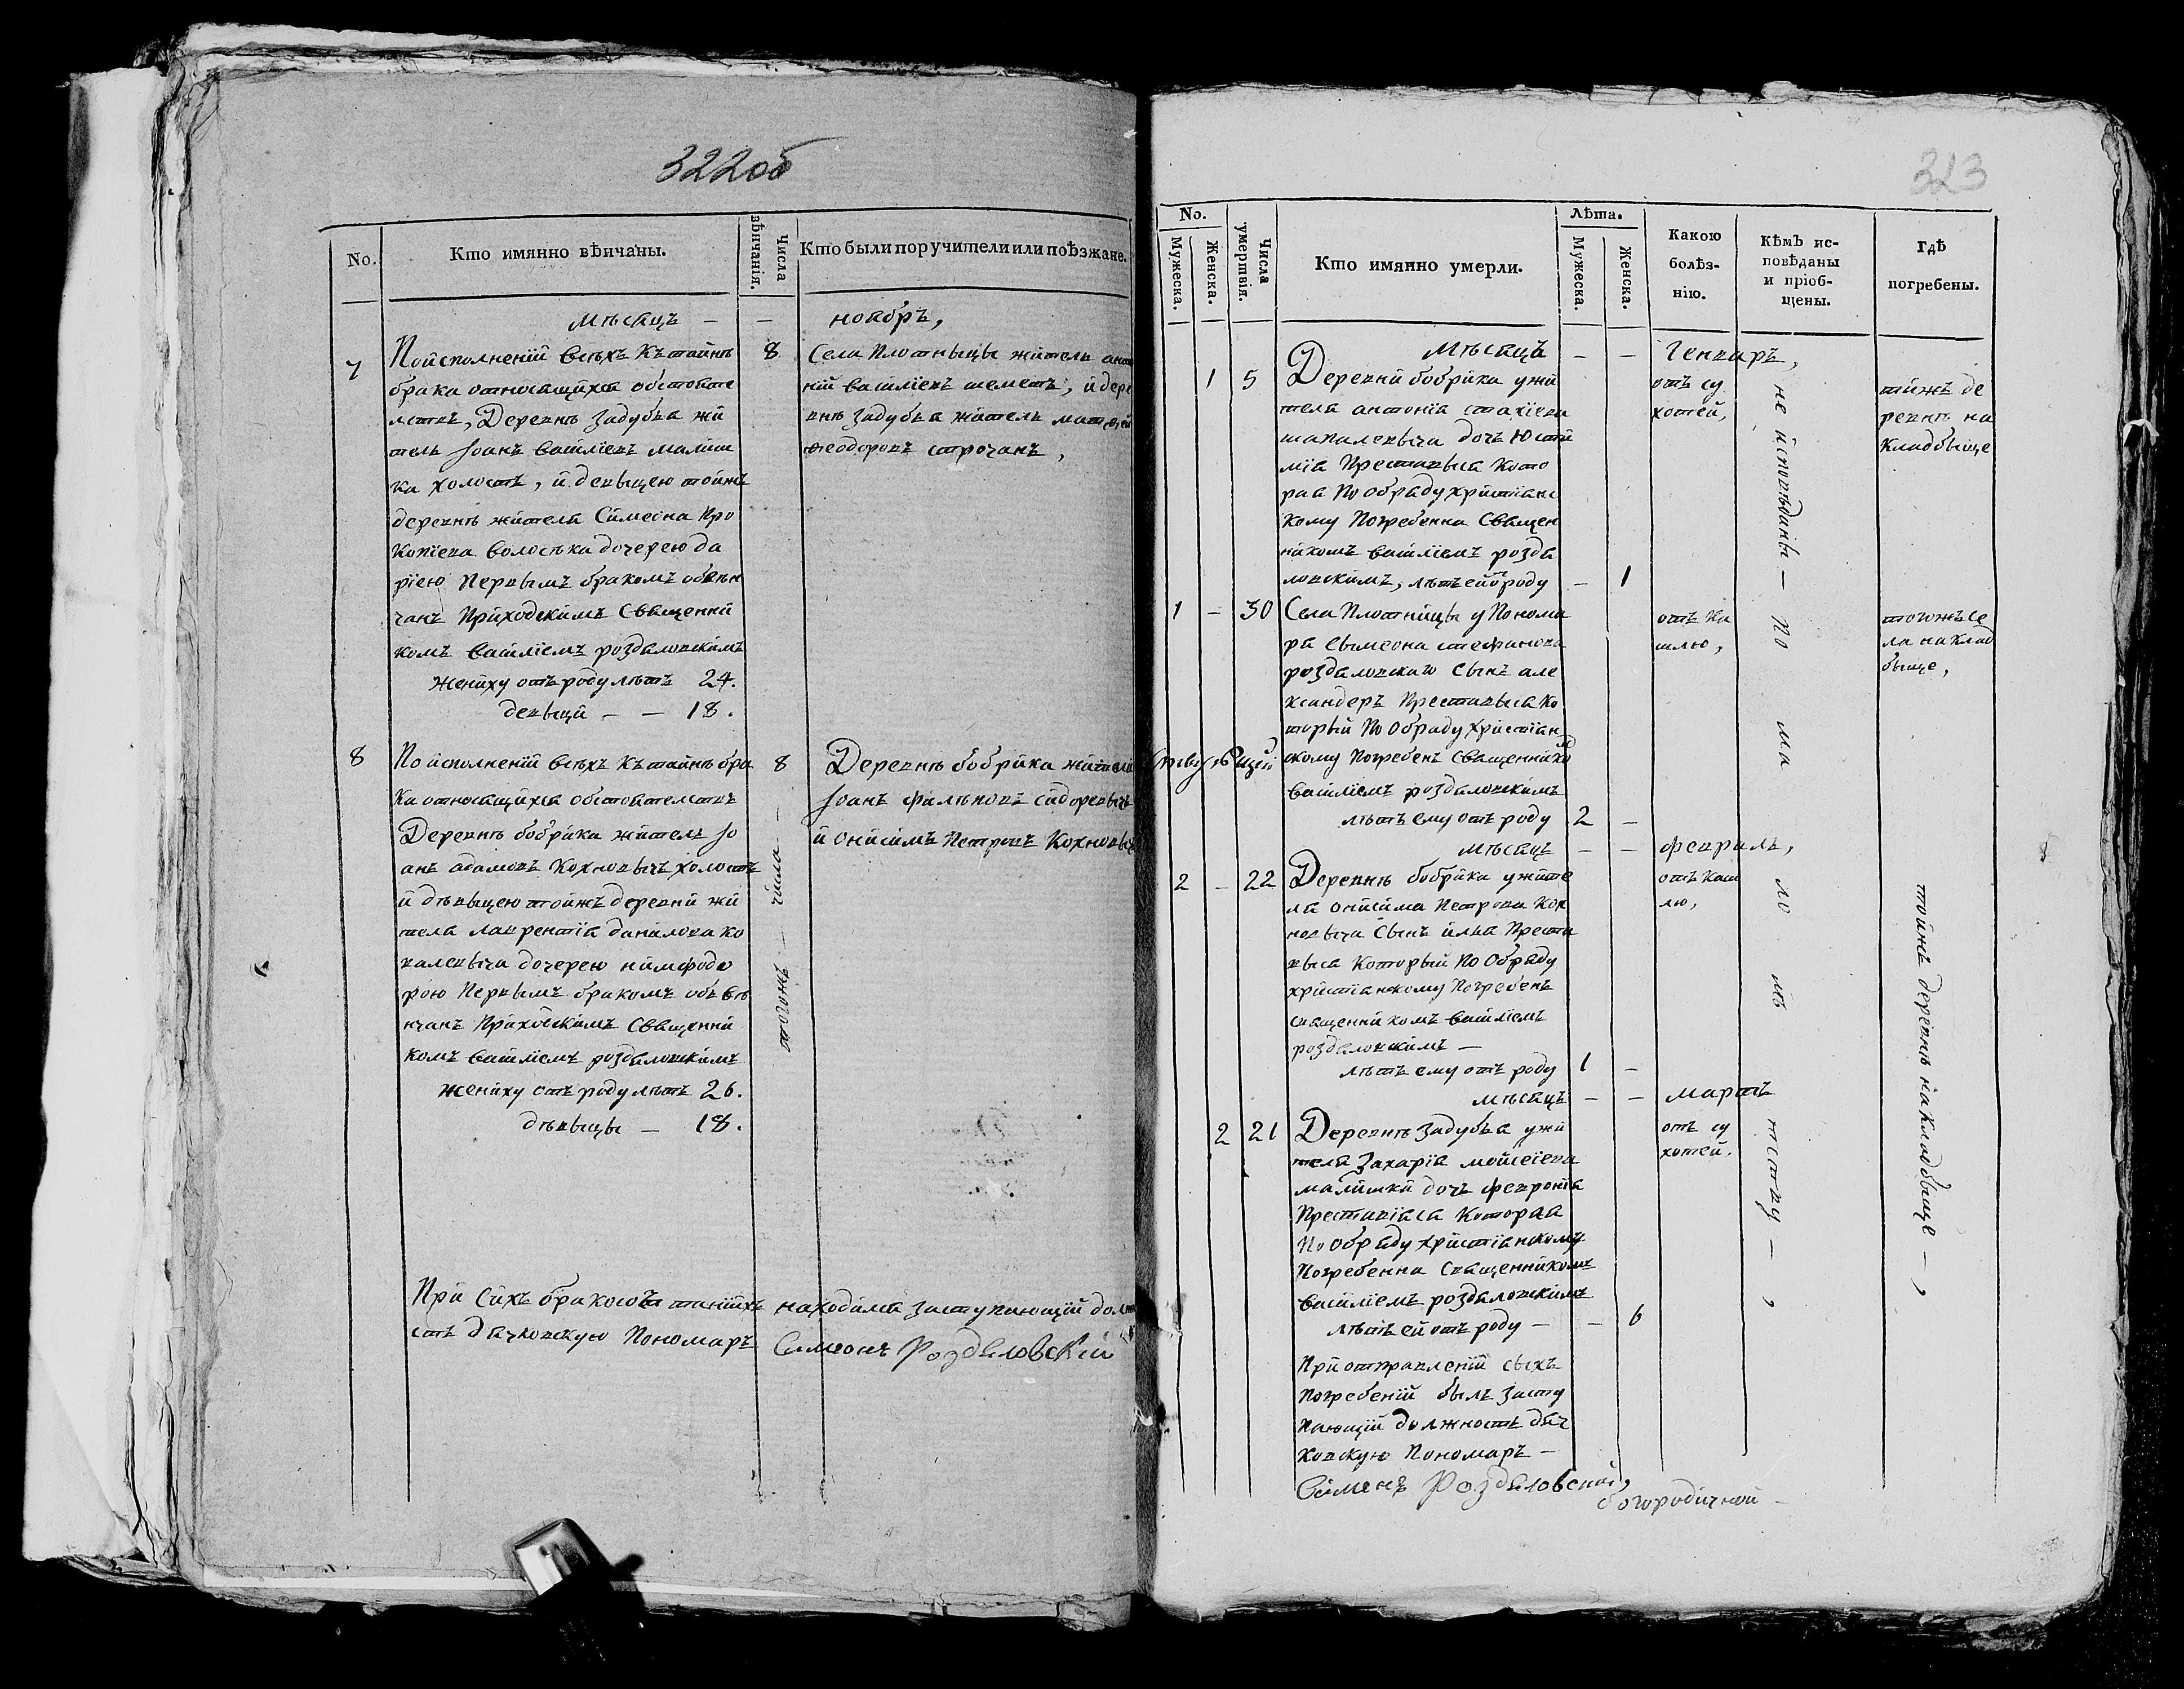 322об
No.
Кто имянно вѣнчаны.
Числа вѣнчанія.
Кто были поручители или поѣзжане.
мѣсяцъ — — ноябръ,
7
Поисполненіи всѣхъ Кътайнѣ
брака относящихся обстояте
лствъ, Деревнѣ Задубья жи
тель Іоанъ василіевъ малиш
ка холостъ, и девыцею тойжъ
деревнѣ жителя Симеона Про
копіева волосѣка дочерею да
ріею Первымъ бракомъ обвѣн
чанъ Приходскимъ Священни
комъ василіемъ роздяловскимъ
жениху отъ роду лѣтъ 24.
девыци — — 18.
8
Села Плотныцы жители
ній василіевъ шеметъ, и дере
внѣ задубья жителъ матфей
феодоровъ строчанъ,
8
По исполненіи всѣхъ Кътайнѣ бра
ка относящихся обстоятелствъ
Деревнѣ бобрика жителъ Іо
анъ адамовъ Кохновычъ холостъ
и дѣвыцею тойжъ деревни жи
теля лаврентія данилова ко
валевыча дочерею нимфодо
рою Первымъ бракомъ обвѣ
нчанъ Приходскимъ Священни
комъ василіемъ роздяловскимъ
жениху отъ роду лѣтъ 26.
дѣвыцы — 18.
8
Деревнѣ бобрика жители
Іоанъ филѣновъ сидоревычъ
и онисимъ Петровъ Кохновычъ
При Сихъ бракосочтаніихъ находился заступающій долж
стъ дячковскую Пономаръ Симеонъ Роздяловскій
323
No.
Мужеска.
Женска.
Числа умертвія.
Кто имянно умерли.
Лѣта.
Мужеска.
Женска.
Какою болѣз-
нію.
Кѣмъ ис-
повѣданы
и пріоб-
щены.
Гдѣ
погребены.
Мѣсяцъ — — Генваръ,
1 5
Деревни бобрика ужи
теля антонія стахіева
шапалевыча дочъ Юсти
мія Преставыся Кото
рая По обряду христіанс
кому Погребенна Священ
никомъ василіемъ роздя
ловскимъ, лѣтъ ей отроду — 1
отъ су
хотей,
тижъ де
ревнѣ на
Кладбыще
1 — 30
Села Плотницы у Понома
ря сымеона стефанова
роздяловскаго сынъ але
ксандеръ Преставыся Ко
торый По Обряду христіан
скому Погребенъ Священнико
василіемъ роздяловскимъ
лѣтъ ему отъ роду 2 —
отъ ка
шлю,
тогожъ се
ла на клад
быще,
мѣсяцъ — — февралъ,
2 — 22
Деревнѣ бобрика ужите
ля онисима Петрова Кох
новыча сынъ илья Преста
выся Который По Обряду
христіанскому Погребенъ
священникомъ василіемъ
роздяловскимъ —
лѣтъ ему отъ роду 1 —
отъ каш
лю,
мѣсяцъ — — мартъ
2 21
Деревнѣ Задубья ужи
теля Захарія мойсеіева
малишки дочъ февронія
Преставіася Которая
По обряду христіанскому
Погребенна Священникомъ
василіемъ роздяловскимъ
лѣтъ ей отъ роду — — 6
отъ су
хотей.
не исповѣданы — по ма ло лѣ тству — ,
тойжъ деревнѣ накладбыще — ,
При отправленіи сыхъ
Погребеній былъ Засту
пающій должностъ дяч
ковскую Пономаръ —
Сименъ Роздяловский,
богородичной —